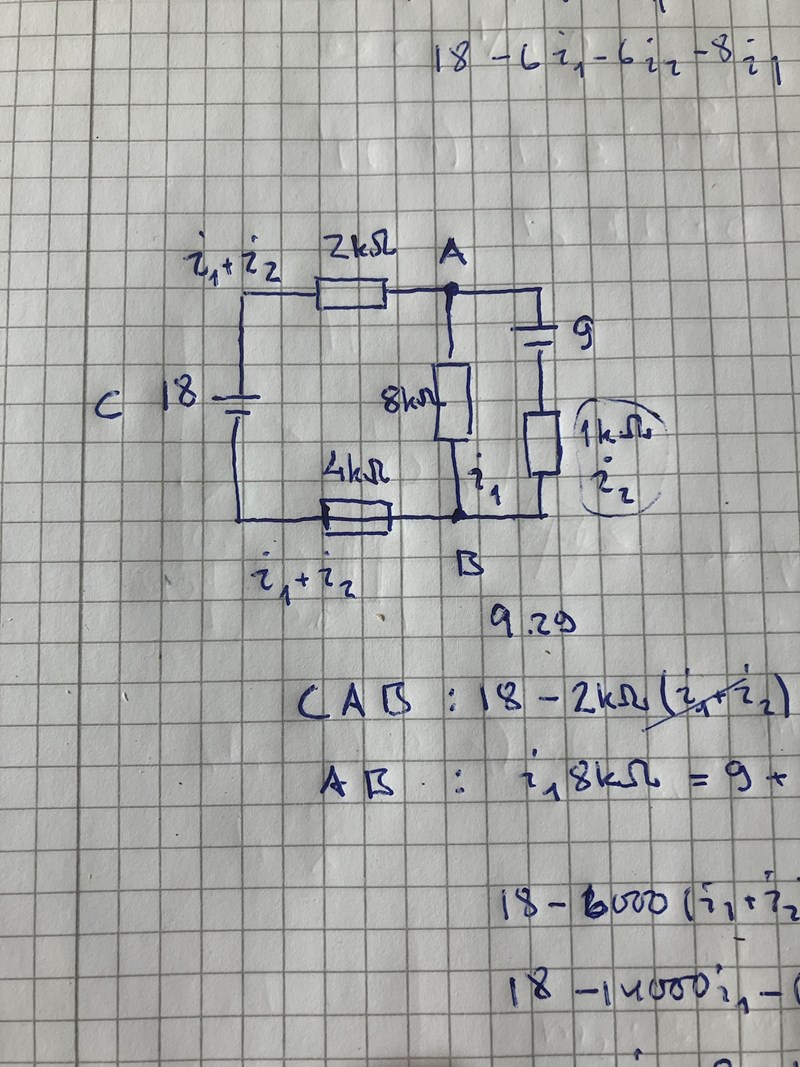 18 - 6i₁ - 6i₂ - 8i₁
i₁ + i₂
2kΩ
A
9
C
18
8kΩ
1kΩ
i₂
4kΩ
i₁
i₁ + i₂
B
9.29
CAB : 18 - 2kΩ (i₁ + i₂)
AB : i₁ 8kΩ = 9 +
18 - 6000 (i₁ + i₂
18 - 14000i₁ -